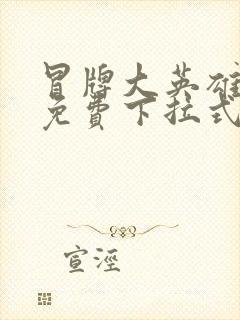 冒牌大英雄
免費下拉式
宣淫